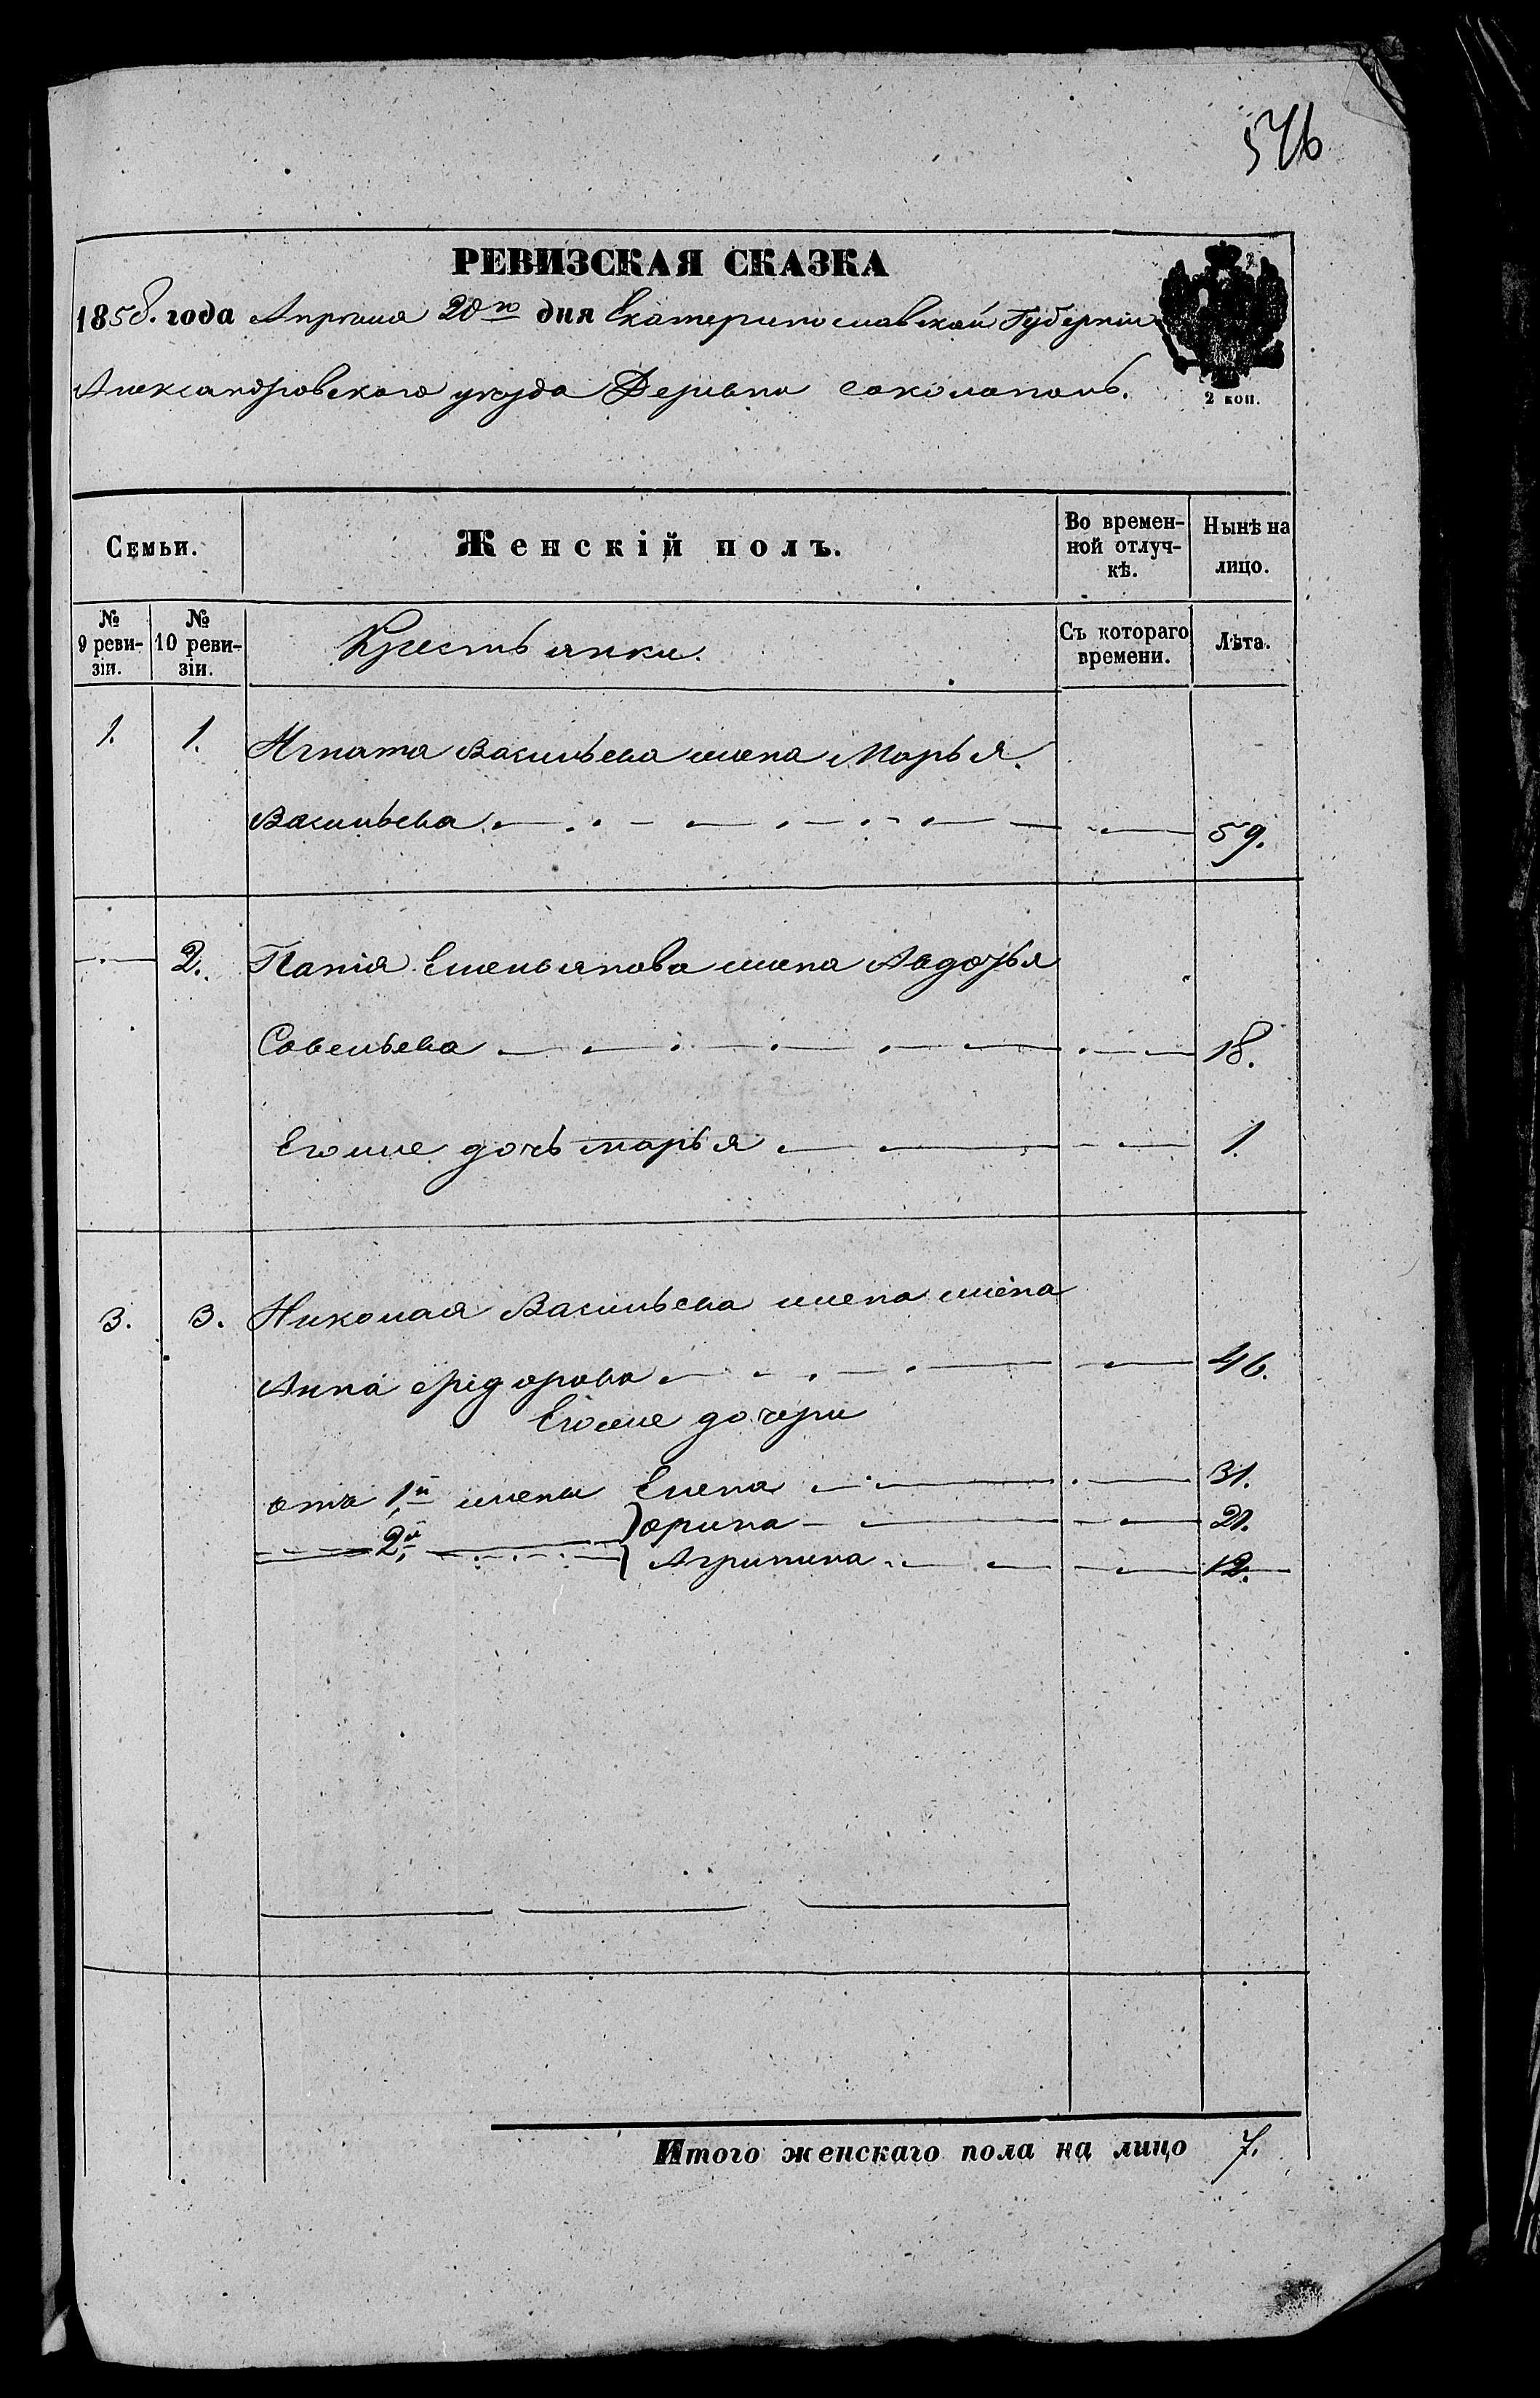 546
РЕВИЗСКАЯ СКАЗКА
1858. года Апреля 28го дня Екатеринославской Губерніи
Александровского уезда Деревни
2 коп.
Семьи.
Женскій полъ.
Во времен-
ной отлуч-
кѣ.
Нынѣ на
лицо.
№
9 реви-
зіи.
№
10 реви-
зіи.
Крестьянки.
Съ котораго
времени.
Лѣта.
1. 1. Игната Васильева жена Марья
Васильева 59.
2. Емельянова жена Авдотья
Савельева 18.
Егоже дочь марья 1.
3. 3. Николая Васильева жена жена
Анна Фіодорова 46.
Егоже дочери
отъ 1й жены Елена 31.
2й орина 21.
Агрипина 12.
Итого женскаго пола на лицо 7.